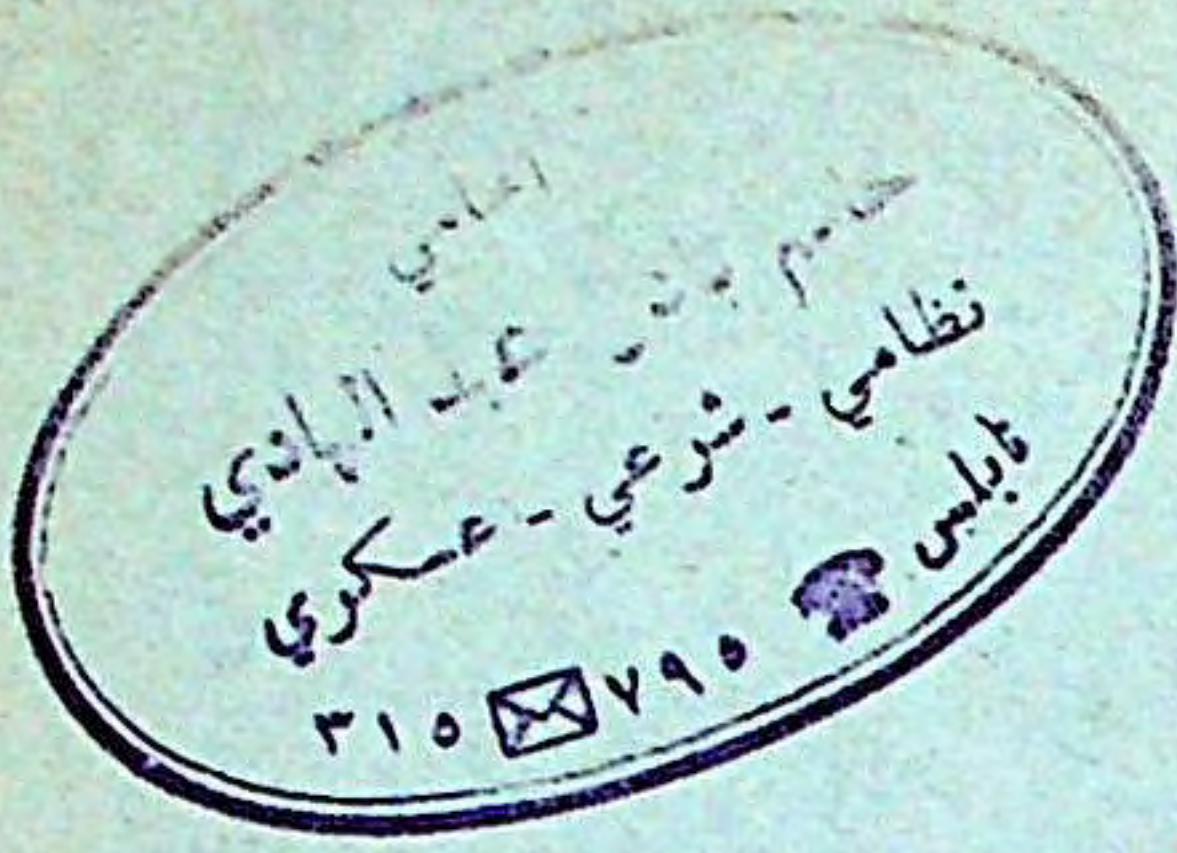 المحامي
عبد الهادي
نظامي - شرعي - عسكري
نابلس ☎ ٧٩٥ ✉ ٣١٥